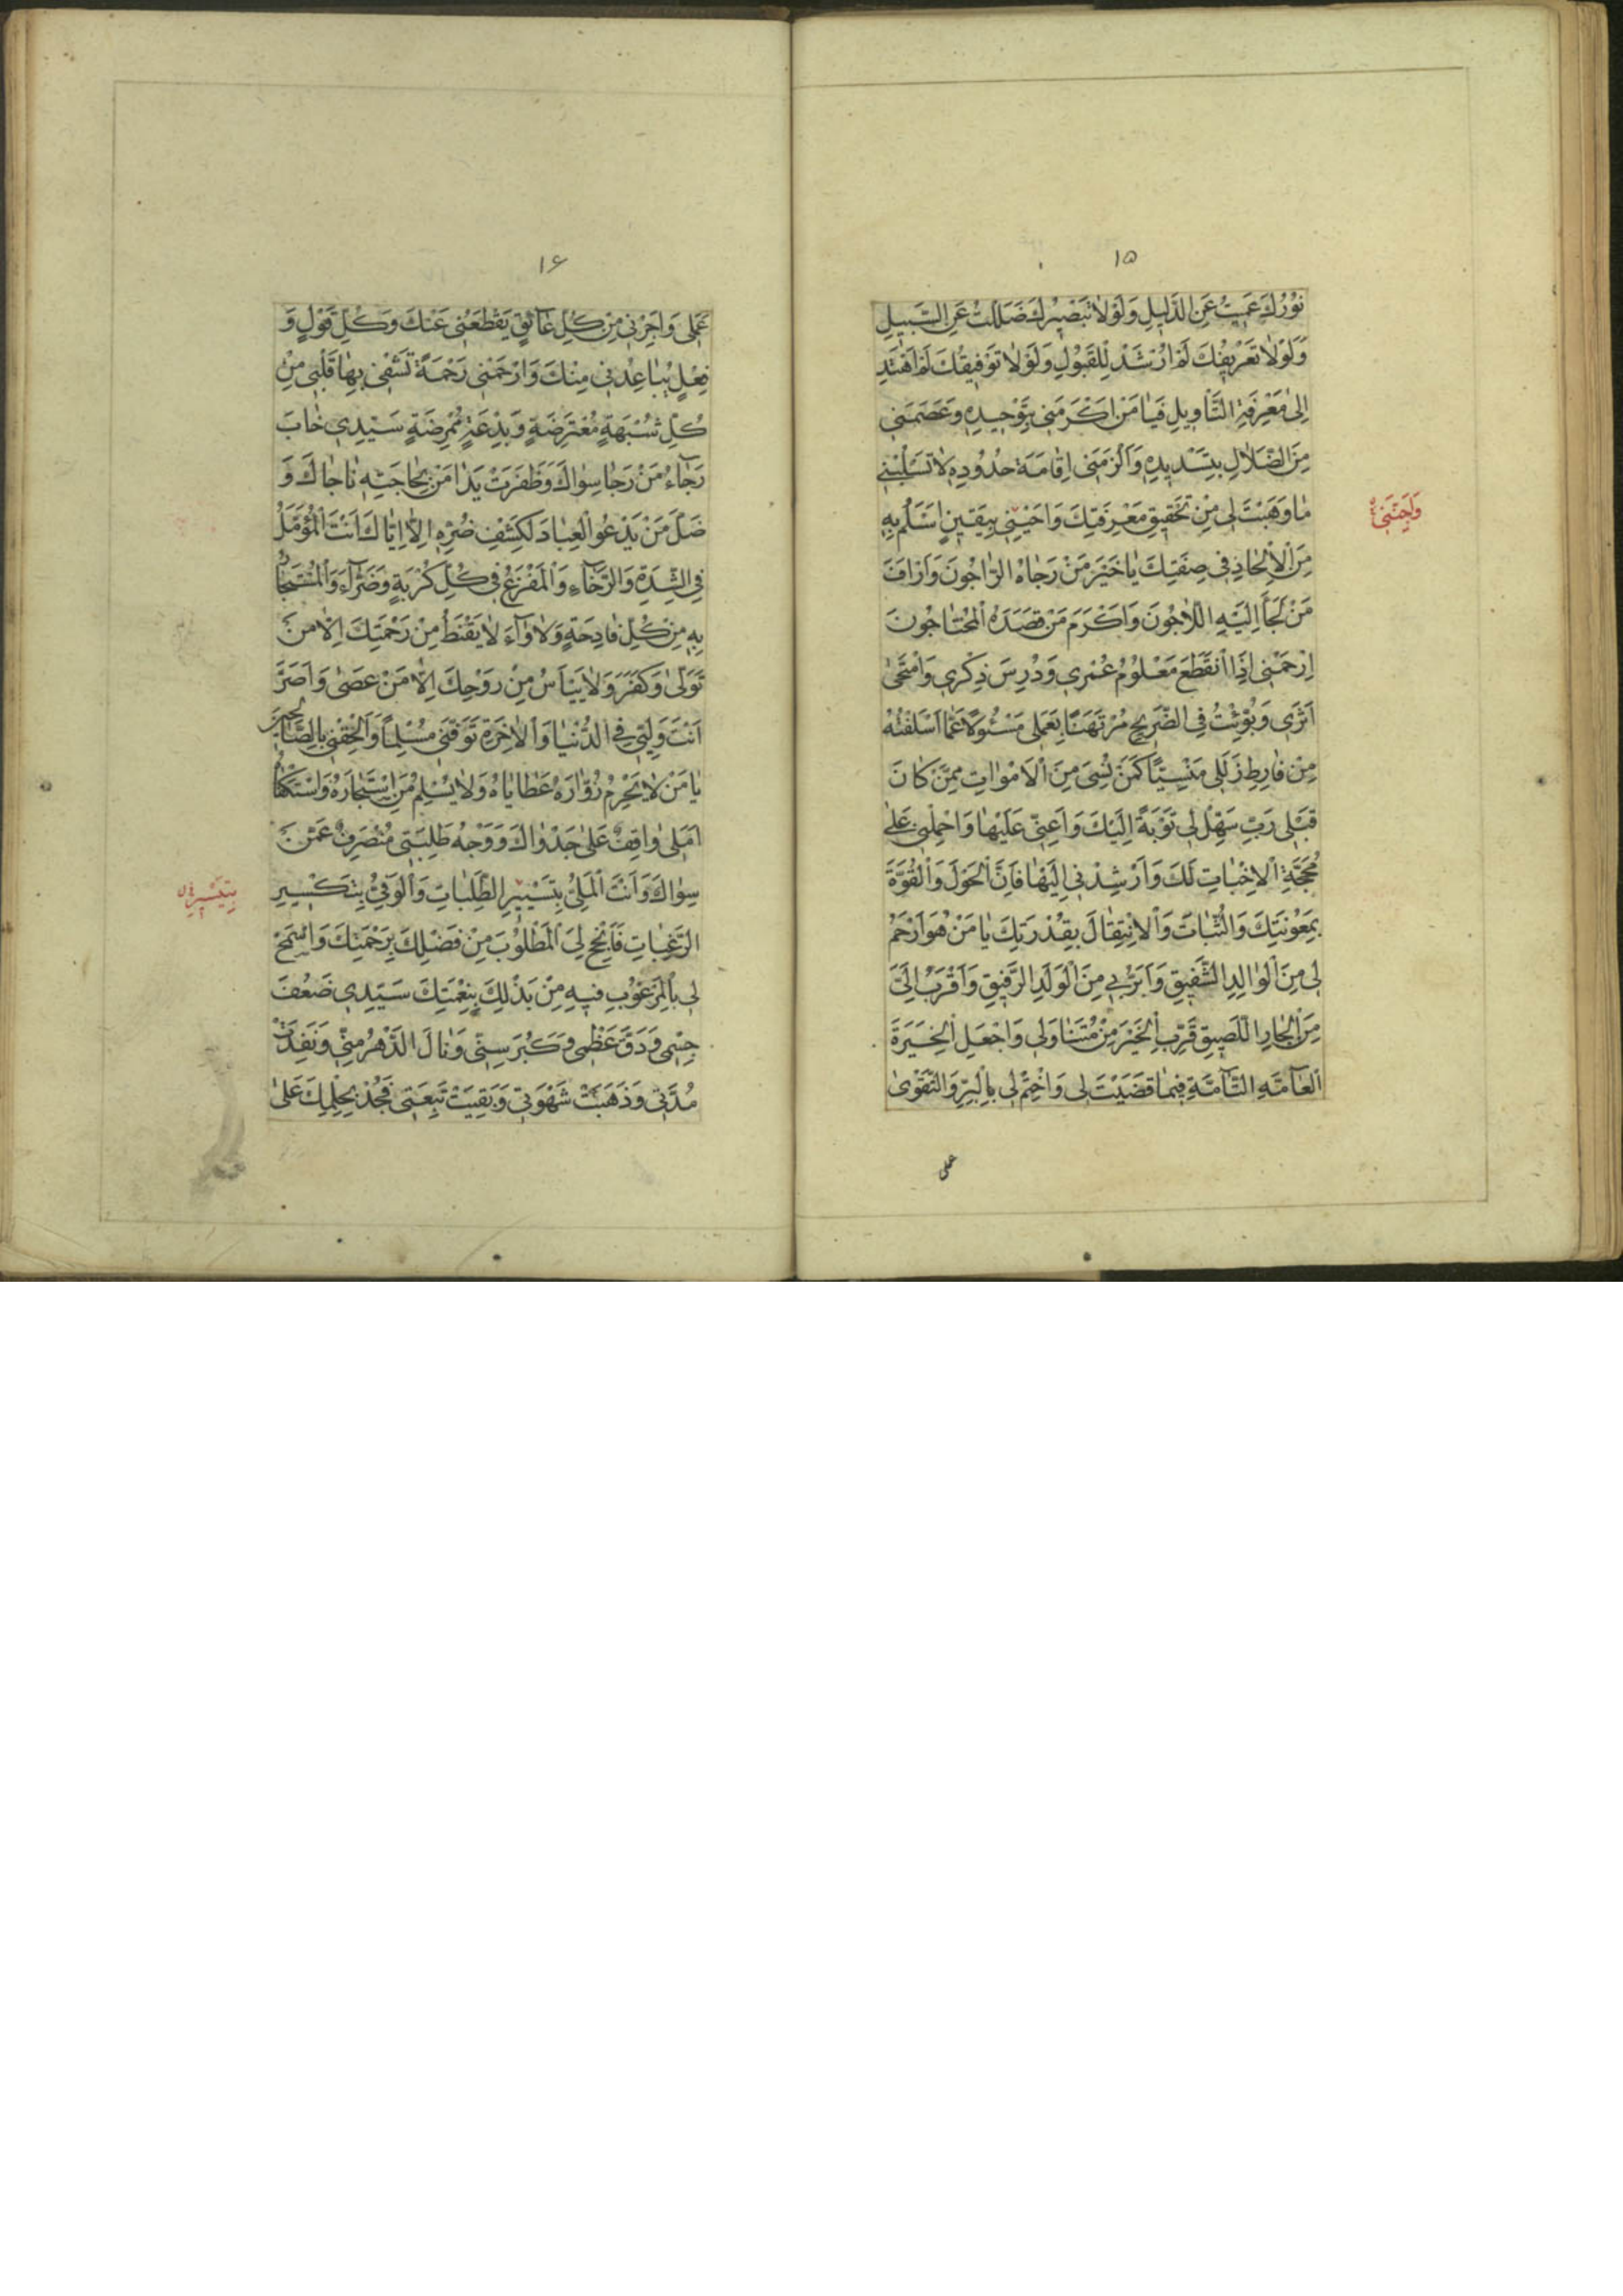 ١٥
نُوْرُكَ عَمِيتُ عَنِ الدَّلِيلِ وَلَوْلَا تَبْصِيرُكَ ضَلَلْتُ عَنِ السَّبِيلِ
وَلَوْلَا تَعْرِيفُكَ لَمْ اَرْشَدْ لِلْقَبُولِ وَلَوْلَا تَوْفِيقُكَ لَمْ اَهْتَدِ
اِلىٰ مَعْرِفَةِ التَّأْوِيلِ فَيٰا مَنْ اَكْرَمَنِي بِتَوْحِيدِهِ وَعَصَمَنِي
مِنَ الضَّلٰالِ بِتَسْدِيدِهِ وَاَلْزَمَنِي اِقٰامَةَ حُدُودِهِ لٰا تَسْلُبْنِي
مٰا وَهَبْتَ لِي مِنْ تَحْقِيقِ مَعْرِفَتِكَ وَاَحْيِنِي بِيَقِينٍ اَسْلَمُ بِهِ
مِنَ الْاِلْحٰادِ فِي صِفَتِكَ يٰا خَيْرَ مَنْ رَجٰاهُ الرّٰاجُونَ وَاَرْاَفَ
مَنْ لَجَأَ اِلَيْهِ اللّٰاجُونَ وَاَكْرَمَ مَنْ قَصَدَهُ الْمُحْتٰاجُونَ
اِرْحَمْنِي اِذَا انْقَطَعَ مَعْلُومُ عُمْرِي وَدُرِسَ ذِكْرِي وَامْتَحىٰ
اَثَرِي وَبُوِّئْتُ فِي الضَّرِيحِ مُرْتَهَنًا بِعَمَلِي مَسْئُولًا عَمّٰا اَسْلَفْتُهُ
مِنْ فٰارِطِ زَلَلِي مَنْسِيًّا كَمَنْ نُسِيَ مِنَ الْاَمْوٰاتِ مِمَّنْ كٰانَ
قَبْلِي رَبِّ سَهِّلْ لِي تَوْبَةً اِلَيْكَ وَاَعِنِّي عَلَيْهٰا وَاحْمِلْنِي عَلىٰ
مَحَجَّةِ الْاِخْبٰاتِ لَكَ وَاَرْشِدْنِي اِلَيْهٰا فَاِنَّ الْحَوْلَ وَالْقُوَّةَ
بِمَعُونَتِكَ وَالثَّبٰاتَ وَالْاِنْتِقٰالَ بِقُدْرَتِكَ يٰا مَنْ هُوَ اَرْحَمُ
لِي مِنَ الْوٰالِدِ الشَّفِيقِ وَاَبَرُّ بِي مِنَ الْوَلَدِ الرَّفِيقِ وَاَقْرَبُ اِلَيَّ
مِنَ الْجٰارِ اللَّصِيقِ قَرِّبِ الْخَيْرَ مِنْ مُتَنٰاوَلِي وَاجْعَلِ الْخِيَرَةَ
الْعٰامَّةَ التّٰامَّةَ فِيمٰا قَضَيْتَ لِي وَاخْتِمْ لِي بِالْبِرِّ وَالتَّقْوىٰ
عملی
١۶
عَمَلِي وَاَجِرْنِي مِنْ كُلِّ عٰائِقٍ يَقْطَعُنِي عَنْكَ وَكُلِّ قَوْلٍ وَ
فِعْلٍ يُبٰاعِدُنِي مِنْكَ وَارْحَمْنِي رَحْمَةً تَشْفِي بِهٰا قَلْبِي مِنْ
كُلِّ شُبْهَةٍ مُعْتَرِضَةٍ وَبِدْعَةٍ مُمْرِضَةٍ سَيِّدِي خٰابَ
رَجٰاءُ مَنْ رَجٰا سِوٰاكَ وَظَفِرَتْ يَدٰا مَنْ بِحٰاجَتِهِ نٰاجٰاكَ وَ
ضَلَّ مَنْ يَدْعُو الْعِبٰادَ لِكَشْفِ ضُرِّهِ اِلّٰا اِيّٰاكَ اَنْتَ الْمُؤَمَّلُ
فِي الشِّدَّةِ وَالرَّخٰاءِ وَالْمَفْزَعُ فِي كُلِّ كُرْبَةٍ وَضَرّٰاءَ وَالْمُسْتَجٰارُ
بِهِ مِنْ كُلِّ فٰادِحَةٍ وَلَاْوٰاءَ لٰا يَقْنَطُ مِنْ رَحْمَتِكَ اِلّٰا مَنْ
تَوَلّىٰ وَكَفَرَ وَلٰا يَيْاَسُ مِنْ رَوْحِكَ اِلّٰا مَنْ عَصىٰ وَاَصَرَّ
اَنْتَ وَلِيِّي فِي الدُّنْيٰا وَالْاٰخِرَةِ تَوَفَّنِي مُسْلِمًا وَاَلْحِقْنِي بِالصّٰالِحِينَ
يٰا مَنْ لٰا يَحْرِمُ زُوّٰارَهُ عَطٰايٰاهُ وَلٰا يُسْلِمُ مَنِ اسْتَجٰارَهُ وَاسْتَكْفٰاهُ
اَمَلِي وٰاقِفٌ عَلىٰ جَدْوٰاكَ وَوَجْهُ طَلِبَتِي مُنْصَرِفٌ عَمَّنْ
سِوٰاكَ وَاَنْتَ الْمَلِيُّ بِتَيْسِيرِ الطَّلِبٰاتِ وَالْوَفِيُّ بِتَكْثِيرِ
الرَّغَبٰاتِ فَاَنْجِحْ لِيَ الْمَطْلُوبَ مِنْ فَضْلِكَ بِرَحْمَتِكَ وَاسْمَحْ
لِي بِالْمَرْغُوبِ فِيهِ مِنْ بَذْلِكَ بِنِعْمَتِكَ سَيِّدِي ضَعُفَ
جِسْمِي وَدَقَّ عَظْمِي وَكَبُرَ سِنِّي وَنٰالَ الدَّهْرُ مِنِّي وَنَفِدَتْ
مُدَّتِي وَذَهَبَتْ شَهْوَتِي وَبَقِيَتْ تَبِعَتِي فَجُدْ بِحِلْمِكَ عَلىٰ